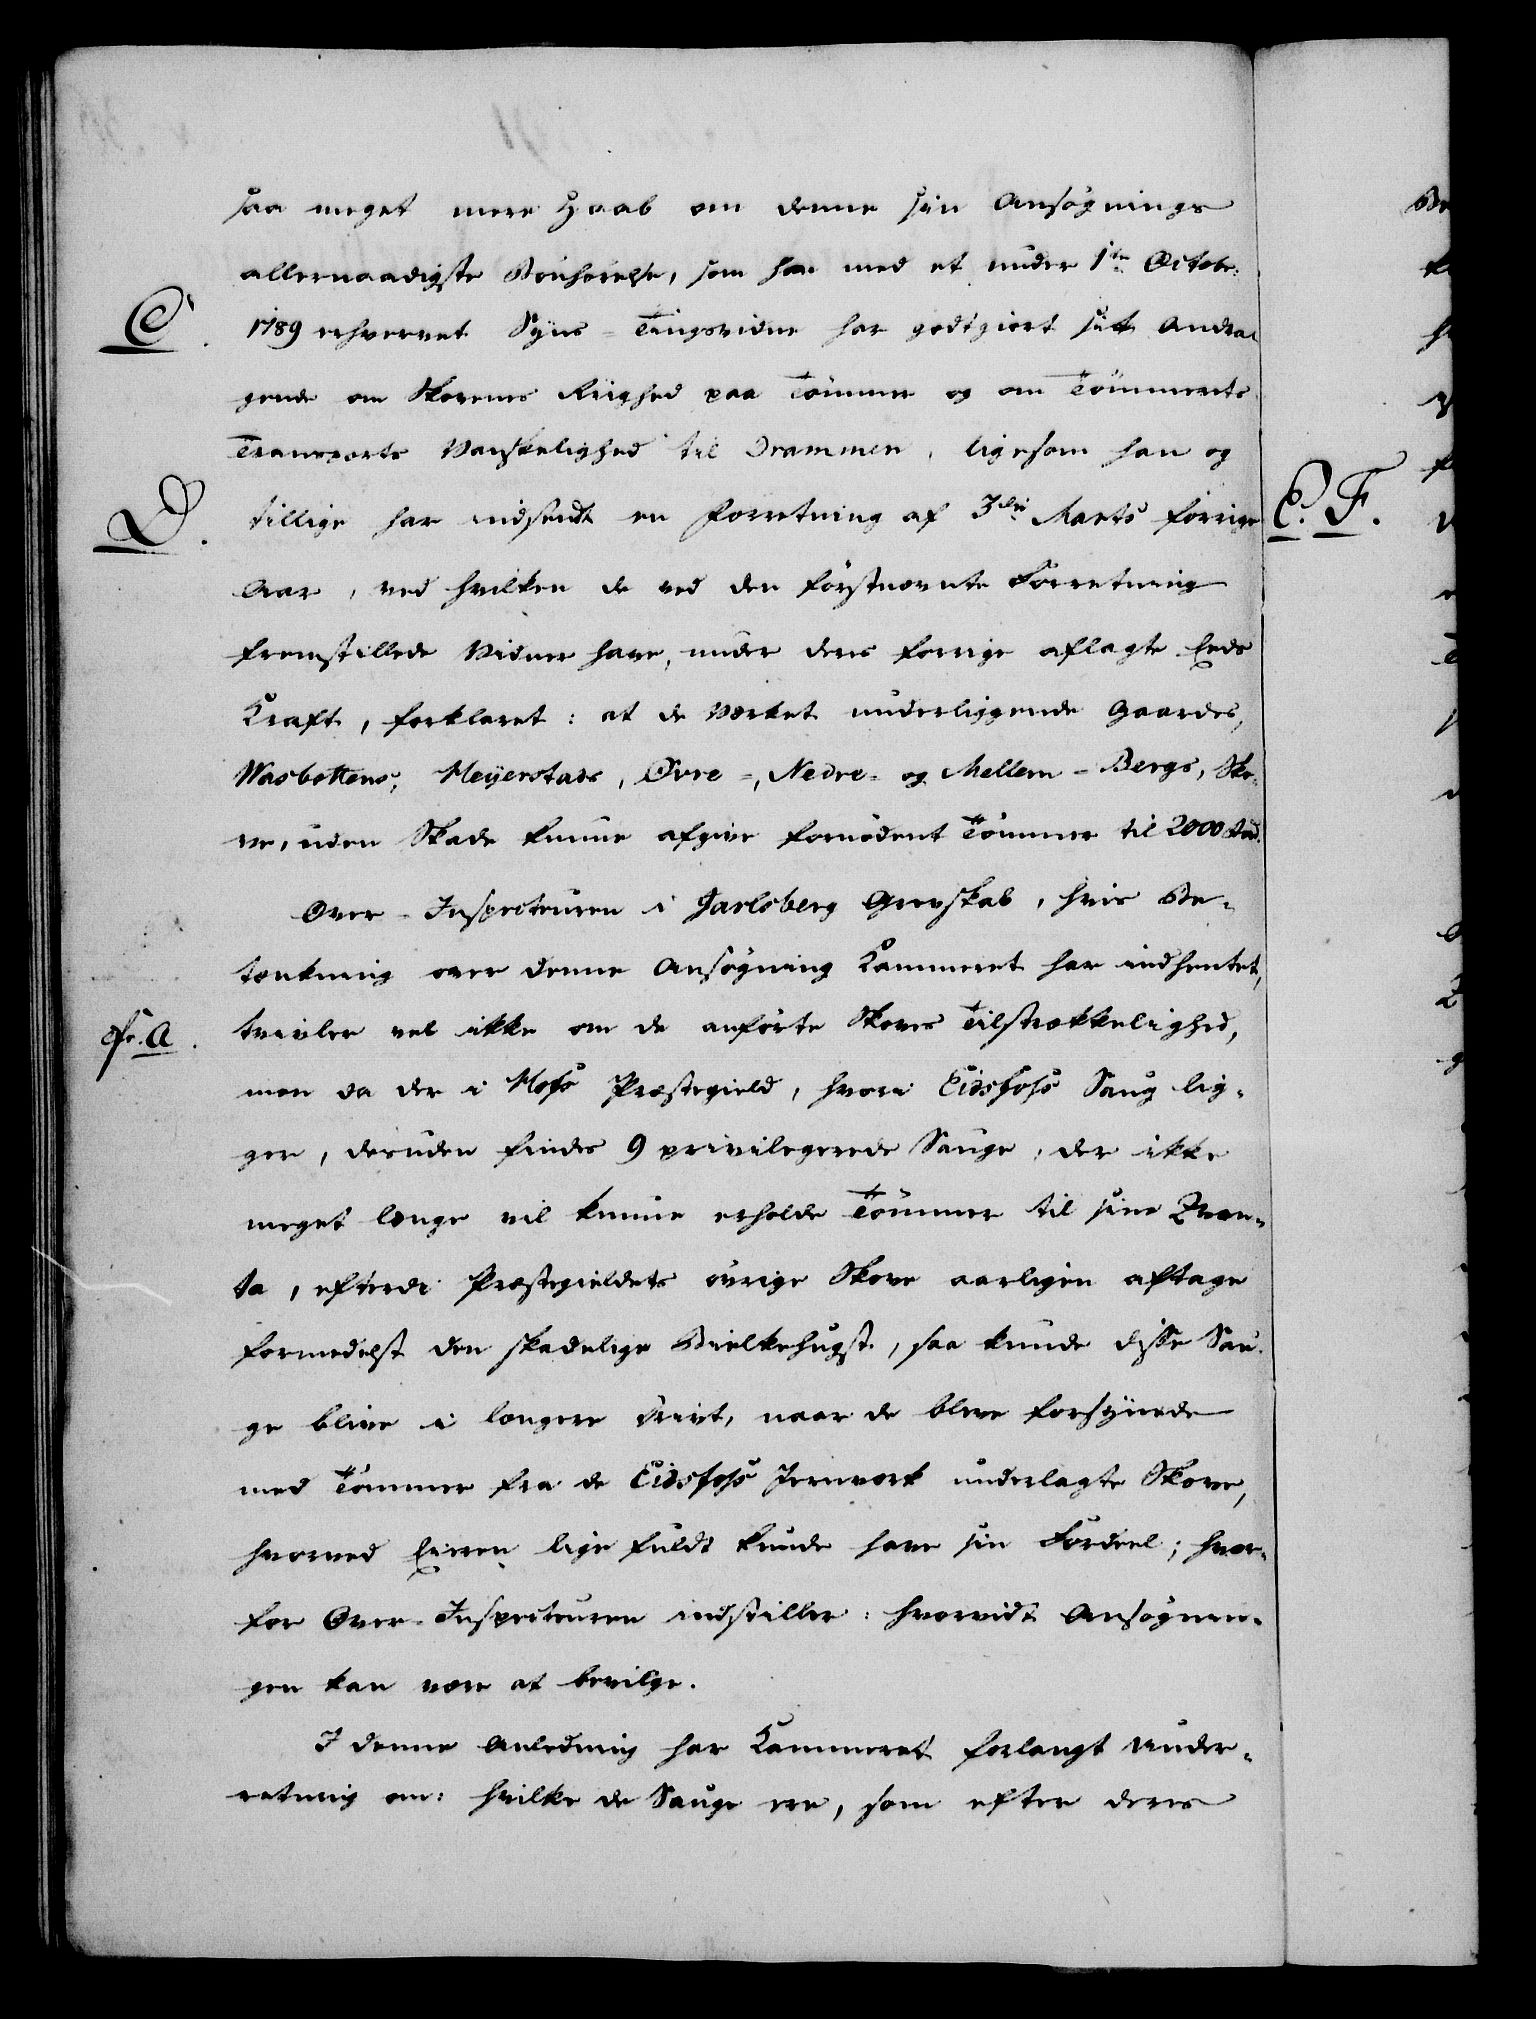 saa meget mere Haab om denne sin Ansøgnings
allernaadigste Bönhørelse, som han med et under 1ste Octobr:
C. 1789 erhvervet Syns-Tingsvidne har godtgiort sit Andra-
gende om Skovenes Riighed paa Tömmer og om Tömmerets
Transports Vanskelighed til Drammen, ligesom han og
D. tillige har indsendt en Forretning af 3die Marts forrige
Aar, ved hvilken de ved den förstnævnte Forretning
fremstillede Vidner have, under deres forrige aflagte Eeds
Kraft, forklaret: at de Værket underliggende Gaardes,
Wasbottens, Meyerstads, Øvre-, Nedre- og Mellem-Bergs, Sko-
ve, uden Skade kunne afgive fornödent Tömmer til 2000
Over-Inspecteuren i Jarlsberg Grevskab, hvis Be-
tænkning over denne Ansøgning Kammeret har indhentet,
cfr. A. tvivler vel ikke om de anförte Skoves Tilstrækkelighed,
men da der i Hofs Præstegield, hvori Eidsfoss Saug lig-
ger, desuden findes 9 privilegerede Sauge, der ikke
meget længe vil kunne erholde Tömmer til sine Qvan-
ta, efterdi Præstegieldets övrige Skove aarligen aftage
formedelst den skadelige Bielkehugst, saa kunde disse Sau-
ge blive i længere Drivt, naar de bleve forsynede
med Tömmer fra de Eidsfoss Jernværk underlagte Skove,
hvorved Eieren lige fuldt kunde have sin Fordeel; hvor-
for Over-Inspecteuren indstiller: hvorvidt Ansøgnin-
gen kan være at bevilge.
I denne Anledning har Kammeret forlangt Under-
retning om: hvilke de Sauge ere, som efter deres
E. F.